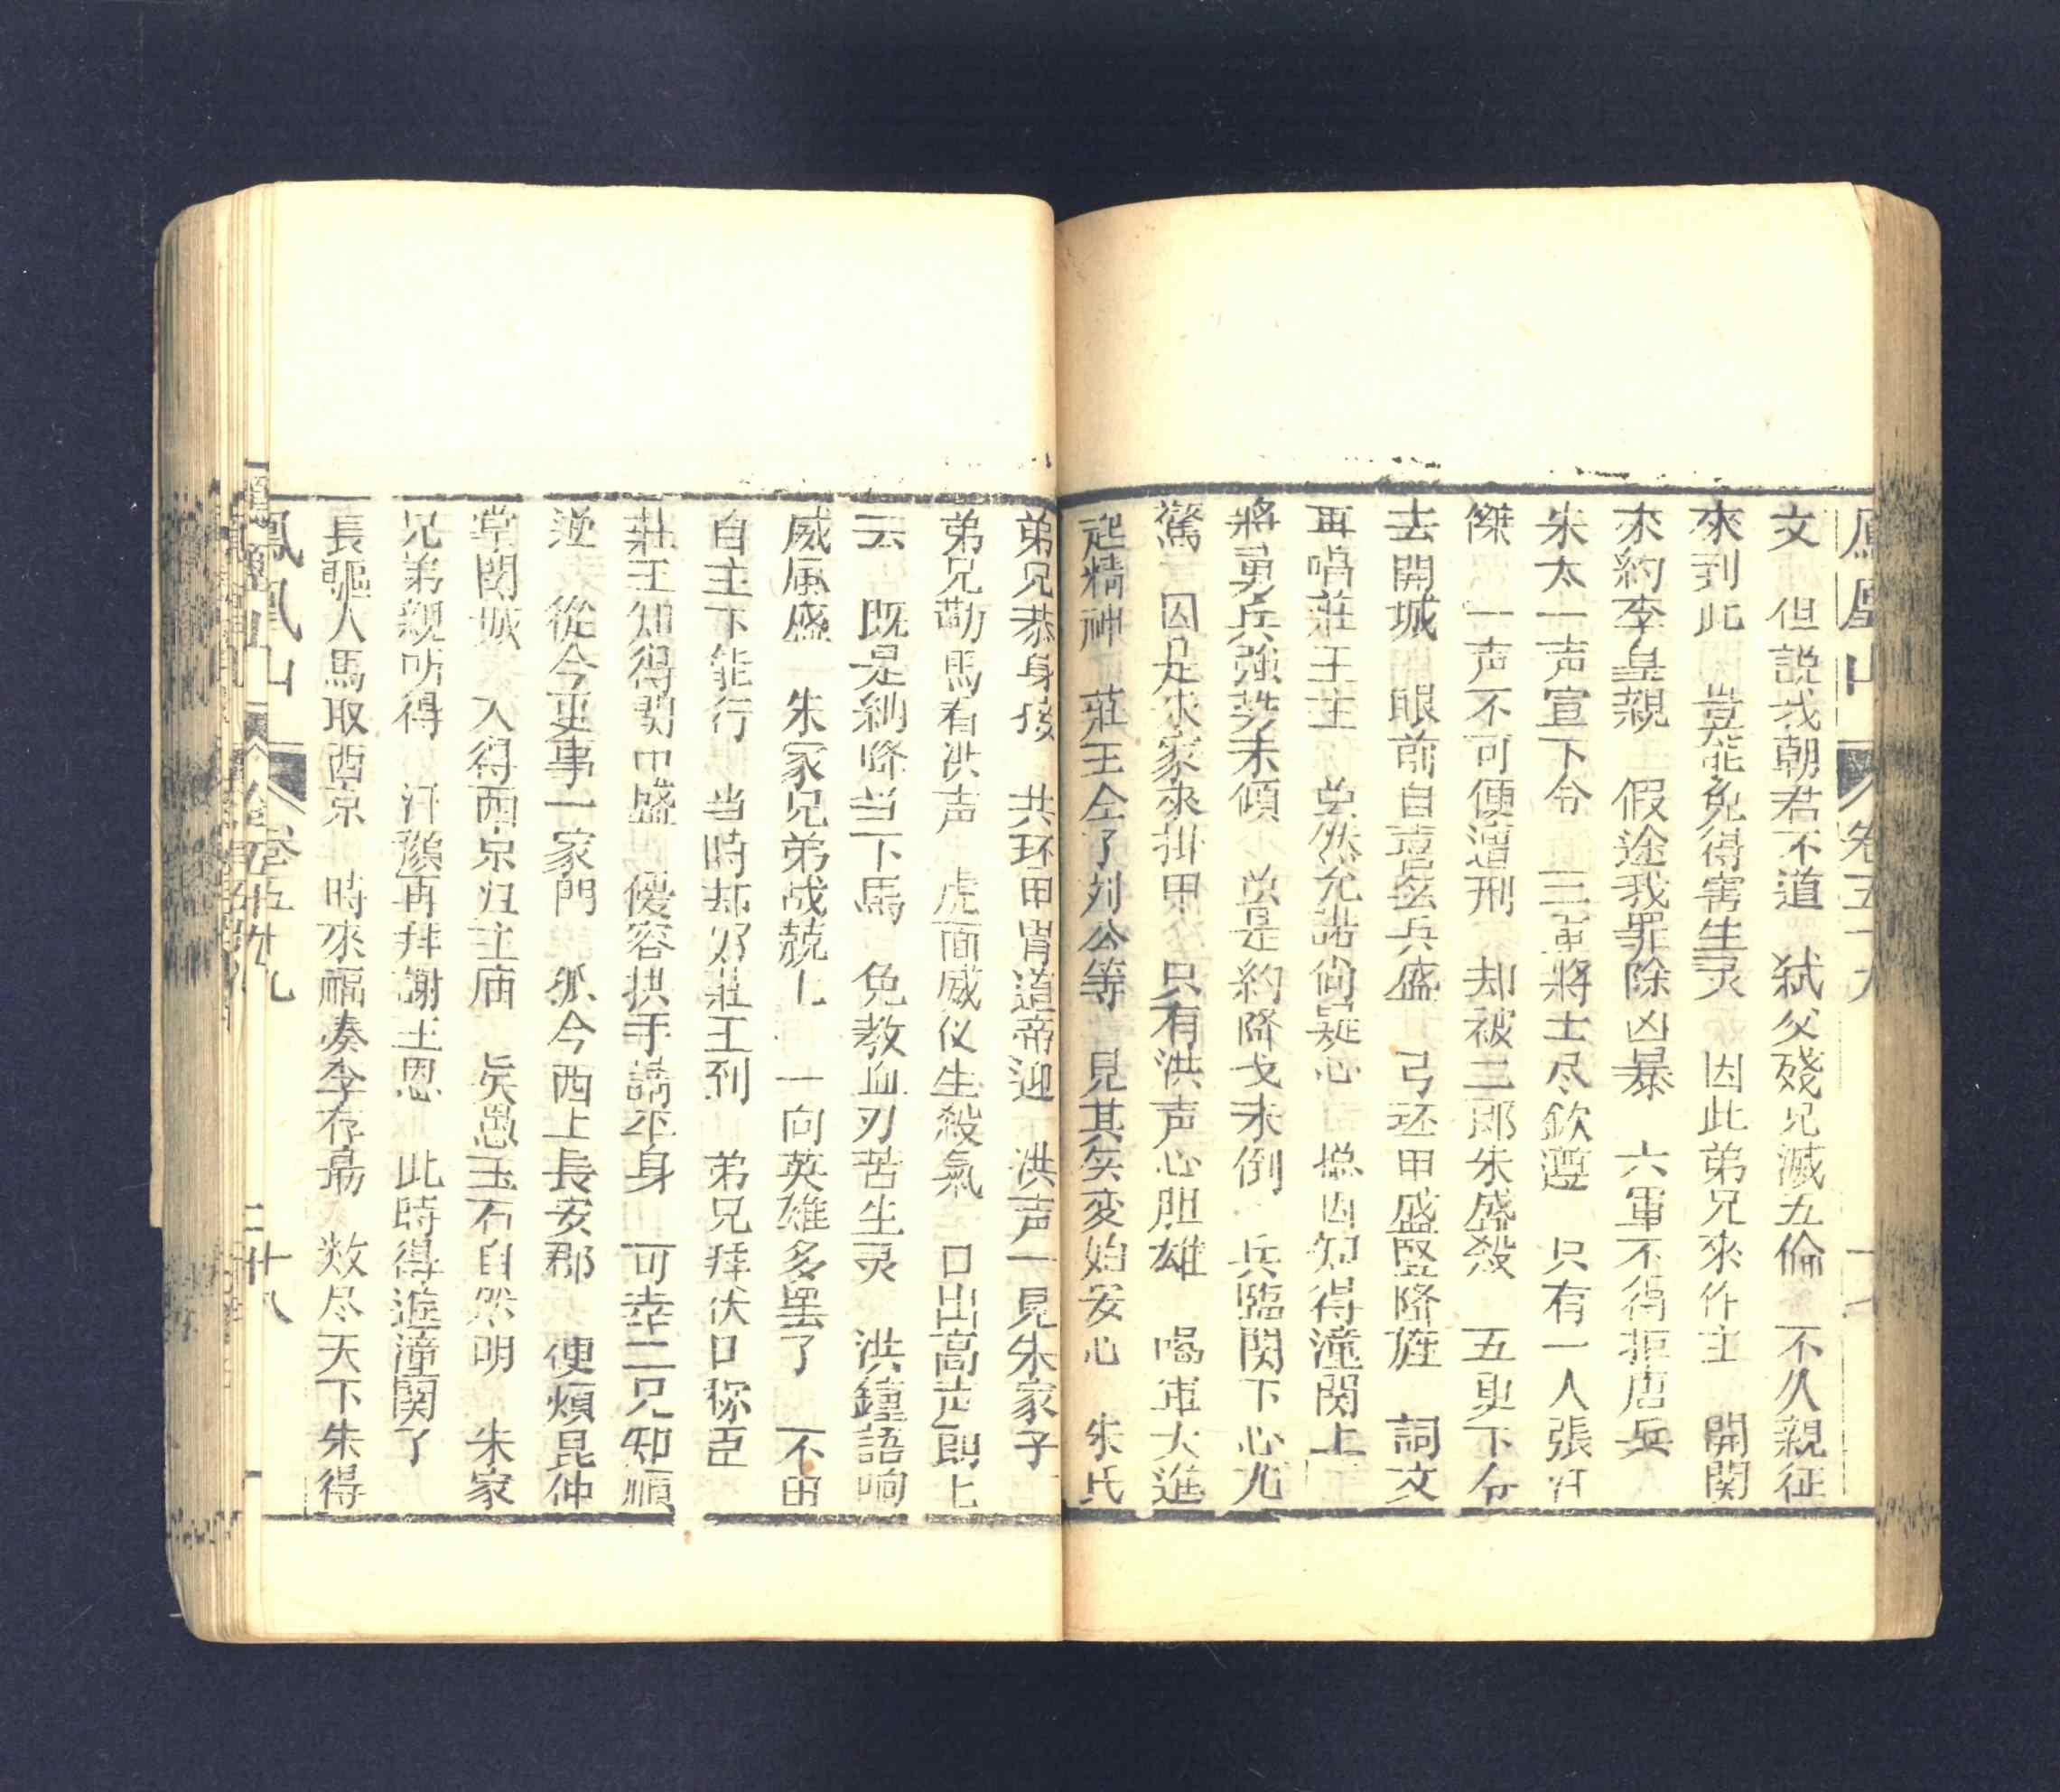 鳳凰山 卷五十九
文 但説我朝君不道 弑父殘兄滅五倫 不久親征
來到此 豈能免得害生灵 因此弟兄來作主 開関
來約李皇親 假途我罪除凶暴 六軍不得拒唐兵
朱太一声宣下令 三軍將士尽欽遵 只有一人張
傑 一声不可便遭刑 却被三郎朱盛殺 五更下令
去開城 眼前自喜兵盛 弓 甲盛竪降旌 詞文
再唱莊王主 虽然允諾尚疑心 知得潼関上
將勇兵強势未傾 虽是約降戈未倒 兵臨関下心尤
驚 因是朱家來掛甲 只有洪声心胆雄 喝軍大進
起精神 莊王仝了刘公等 見其矣変始安心 朱氏
弟兄恭身接 共环甲胄道帝迎 洪声一見朱家子
弟兄勒馬看洪声 虎面威仪生殺氣 口出高声朗上
云 既是納降当下馬 免教血刃苦生灵 洪鐘語响
威風盛 朱家兄弟战兢上 一向英雄多罢了 不由
自主下能行 当時却 莊王到 弟兄拜伏口称臣
莊王知得関中盛 優容拱手請平身 可幸二兄知順
逆 從今吏事一家門 孤今西上長安郡 便煩昆仲
掌関城 入得西京归主庙 矣愚玉石自然明 朱家
兄弟親听得 汗 再拜謝王恩 此時得進潼関了
長驅人馬取西京 時來福凑李存勗 数尽天下朱得
鳳凰山 卷五十九 十八